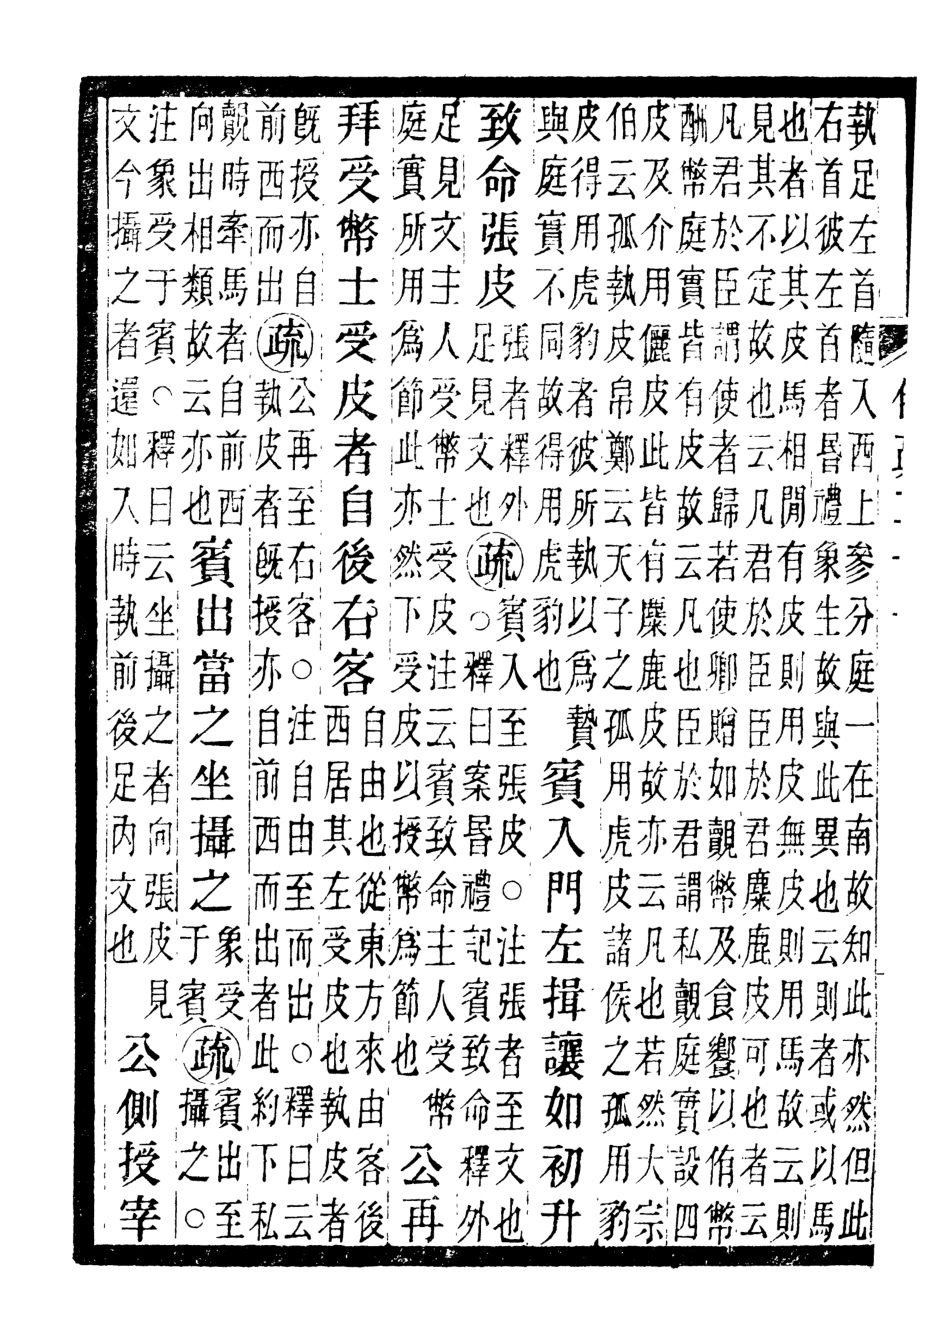 執足左首隨入西上參分庭一在南故知此亦然但此
右首彼左首者昏禮象生故與此異也云則者或以馬
也者以其皮馬相閒有皮則用皮無皮則用馬故云則
見其不定故也云凡君於臣臣於君麋鹿皮可也者云
凡君於臣謂使者歸若使卿贈如覿幣及食饗以侑幣
酬幣庭實皆有皮故云凡也臣於君謂私覿庭實設四
皮及介用儷皮此皆有麋鹿皮故亦云凡也若然大宗
伯云孤執皮帛鄭云天子之孤用虎皮諸侯之孤用豹
皮得用虎豹者彼所執以爲贄
與庭實不同故得用虎豹也
賓入門左揖讓如初升
致命張皮
張者釋外
足見文也
疏
賓入至張皮○注張者至文也
○釋曰案昏禮記賓致命釋外
足見文主人受幣士受皮注云賓致命主人受幣
庭實所用爲節此亦然下受皮以授幣爲節也
公再
拜受幣士受皮者自後右客
自由也從東方來由客後
西居其左受皮也執皮者
既授亦自
前西而出
疏
公再至右客○注自由至而出○釋曰云
執皮者既授亦自前西而出者此約下私
覿時牽馬者自前西
向出相類故云亦也
賓出當之坐攝之
象受
于賓
疏
賓出至
攝之○
注象受于賓○釋曰云坐攝之者向張皮見
文今攝之者還如入時執前後足內文也
公側授宰